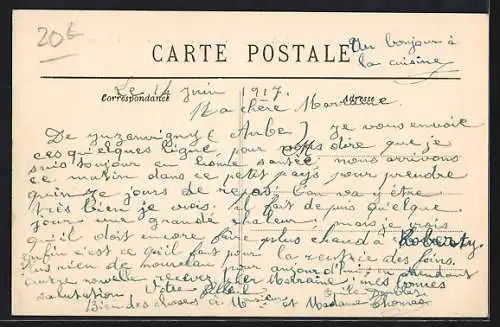 20f
CARTE POSTALE
Un bonjour à
la cuisine
Correspondance
Adresse
Le 14 Juin 1917.
Ma chère Marraine.
De Juzanvigny (Aube) je vous envoie
ces quelques ligne pour vous dire que je
suis toujour en bonne santée nous arrivons
ce matin dans ce petit pays pour prendre
quinze jours de repos: l'on va y être
très bien je vois: il fait depuis quelque
jour une grande chaleur, mais je vois
qu'il doit encore faire plus chaud à
enfin c'est ce qu'il faut pour la rentrée des foins.
plus rien de nouveau pour aujourd'hui en attendant
votre nouvelle recevez chère Marraine, mes bonnes
salutation Votre filleul
Bien des choses à Monsieur et Madame